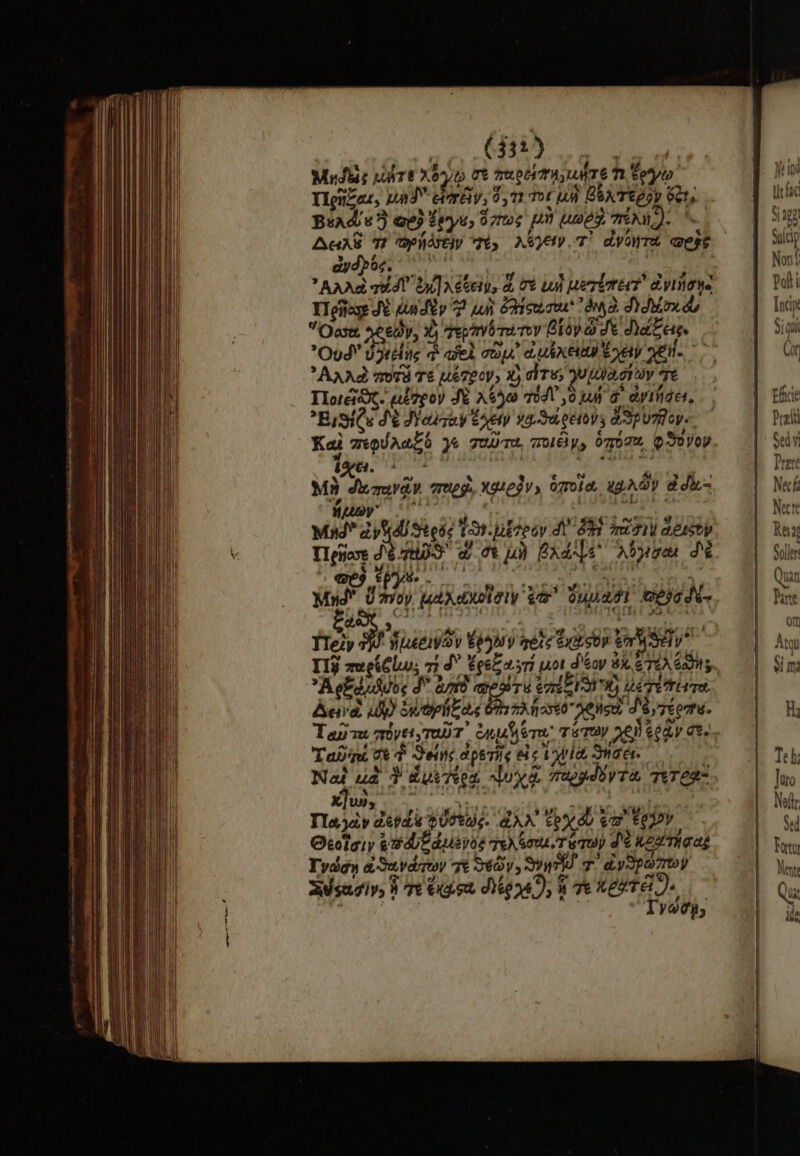 (332)
Μηδεὶς μήτε λόγῳ σε παρείπῃ, μήτε τι ἔργῳ
Πρῆξαι, μηδ᾽ εἰπεῖν, ὅ, τι τοι μὴ βέλτερόν ὅζι.
Βυλεύυ ϳ πρὸ ἔργυ, ὅπως μὴ μωρὰ πέληται.
Δειλοῦ τι πρήσσειν τέ, λέγειν τ᾽ ἀνόητα πρὸς
ἀνδρός.
Ἀλλὰ τάδ᾽ ἐκτελέειν, ἅ σε μὴ μετέπειτ᾽ ἀνιήσῃ.
Πρῆσσε δὲ μηδὲν τῶν μὴ ἐπίστασαι· ἀλλὰ διδάσκευ
Ὅσσα χρεών, καὶ τερπνότατον βίον ὧδε διάξεις.
Οὐδ᾽ ὑγιείης τῆς περὶ σῶμ᾽ ἀμέλειαν ἔχειν χρή.
Ἀλλὰ ποτοῦ τε μέτρον, καὶ σίτου, γυμνασίων τε
Ποιεῖσθαι. μέτρον δὲ λέγω τόδ᾽, ὃ μή σ᾽ ἀνιήσει.
Εἰθίζου δὲ δίαιταν ἔχειν καθάρειον, ἄθρυπτον.
Καὶ πεφύλαξό γε ταῦτα ποιεῖν, ὁπόσα φθόνον
ἴχει.
Μὴ δαπανᾶν παρὰ καιρὸν, ὁποῖα καλῶν ἀδα-
ήμων·
Μηδ᾽ ἀνελεύθερος ἴσθι. μέτρον δ᾽ ἐπὶ πᾶσιν ἄριστον
Πρῆσσε δὲ ταῦθ᾽ ἅ σε μὴ βλάψε· λόγισαι δὲ
πρὸ ἔργου.
Μηδ᾽ ὕπνον μαλακοῖσιν ἐπ᾽ ὄμμασι προσδέ-
ξασθαι,
Πρὶν τῶν ἡμερινῶν ἔργων τρὶς ἕκαστον ἐπελθεῖν·
Πῆ παρέβην; τί δ᾽ ἔρεξα; τί μοι δέον οὐκ ἐτελέσθη;
Ἀρξάμενος δ᾽ ἀπὸ πρώτου ἐπέξιθι· καὶ μετέπειτα
Δεινὰ μὲν ἐκπρήξας ἐπιπλήσσεο· χρηστὰ δὲ, τέρπου.
Ταῦτα πόνει, ταῦτ᾽ ἐκμελέτα· τούτων χρὴ ἐρᾶν σε.
Ταῦτά σε τῆς θείης ἀρετῆς εἰς ἴχνια θήσει.
Ναὶ μὰ τὸν ἁμετέρᾳ ψυχᾷ παραδόντα τετρα-
κτὺν,
Παγὰν ἀενάου φύσεως. ἀλλ᾽ ἔρχευ ἐπ᾽ ἔργον
Θεοῖσιν ἐπευξάμενος τελέσαι. τούτων δὲ κρατήσας
Γνώσῃ ἀθανάτων τε θεῶν, θνητῶν τ᾽ ἀνθρώπων
Σύστασιν, ᾗ τε ἕκαστα διέρχεται, ᾗ τε κρατεῖται.
Γνώσῃ,